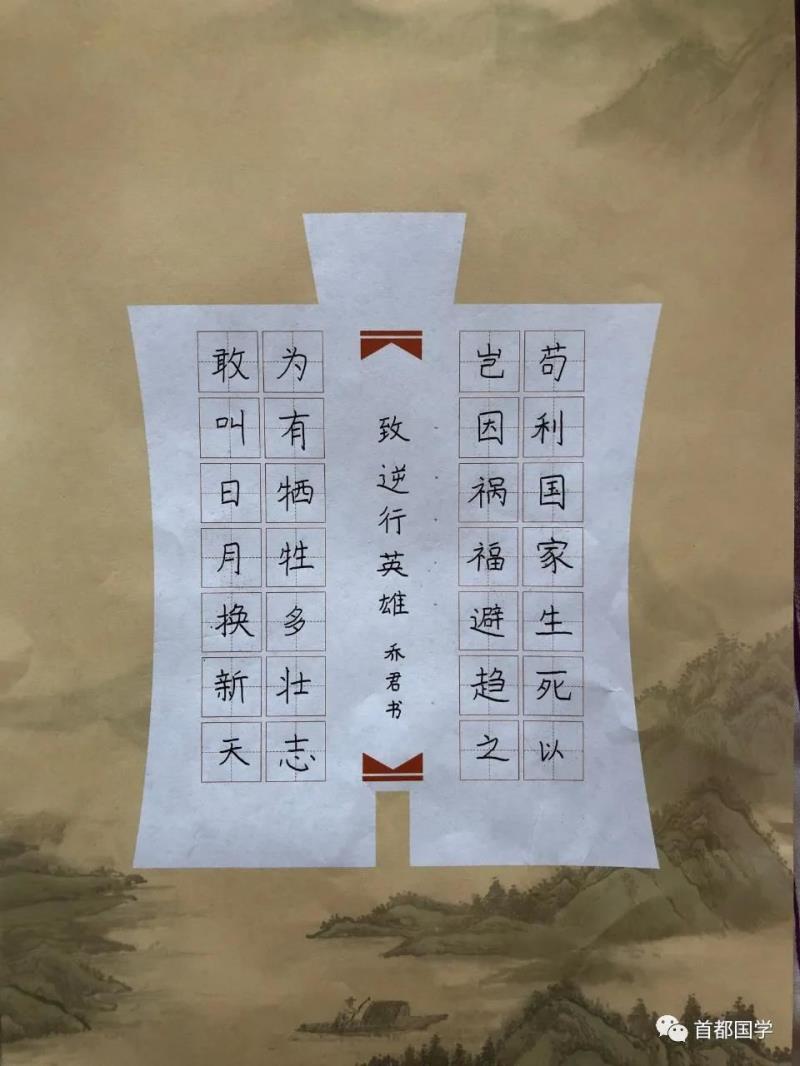 苟利国家生死以
岂因祸福避趋之
致逆行英雄 乔君书
为有牺牲多壮志
敢叫日月换新天
首都国学